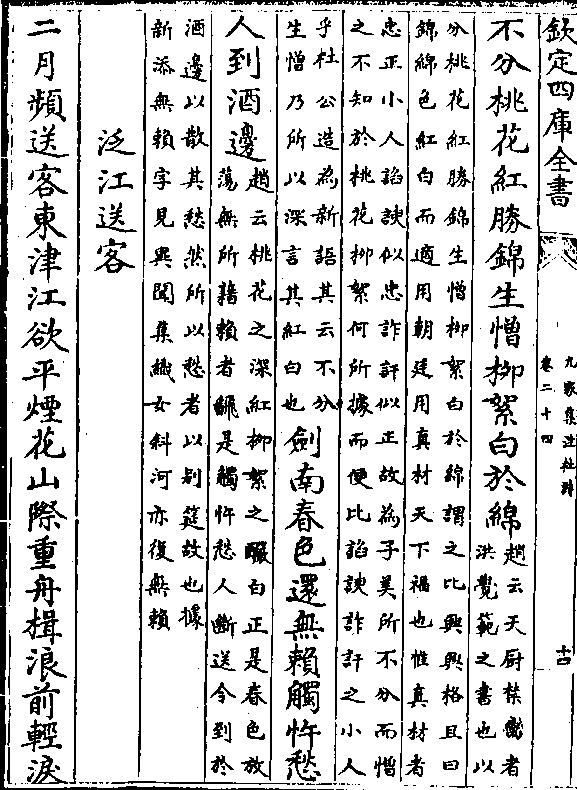 欽定四庫全書
九家集注杜詩
卷二十四
十四
不分桃花紅勝錦生憎栁絮白於綿
趙云天厨禁臠者
洪覺範之書也以
分桃花紅勝錦生憎栁絮白於綿謂之比興興格且曰
錦綿色紅白而適用朝廷用真材天下福也惟真材者
忠正小人謟諛似忠詐訐似正故為子美所不分而憎
之不知於桃花栁絮何所據而便比謟諛詐訐之小人
乎杜公造為新語其云不分
生憎乃所以深言其紅白也
劍南春色還無賴觸忤愁
人到酒邊
趙云桃花之深紅栁絮之白正是春色放
蕩無所藉賴者是觸忤愁人斷送令到於
酒邊以散其愁然所以愁者以别筵故也據
新添無賴字見集織女斜河亦復無賴
泛江送客
二月頻送客東津江欲平煙花山際重舟楫浪前輕淚